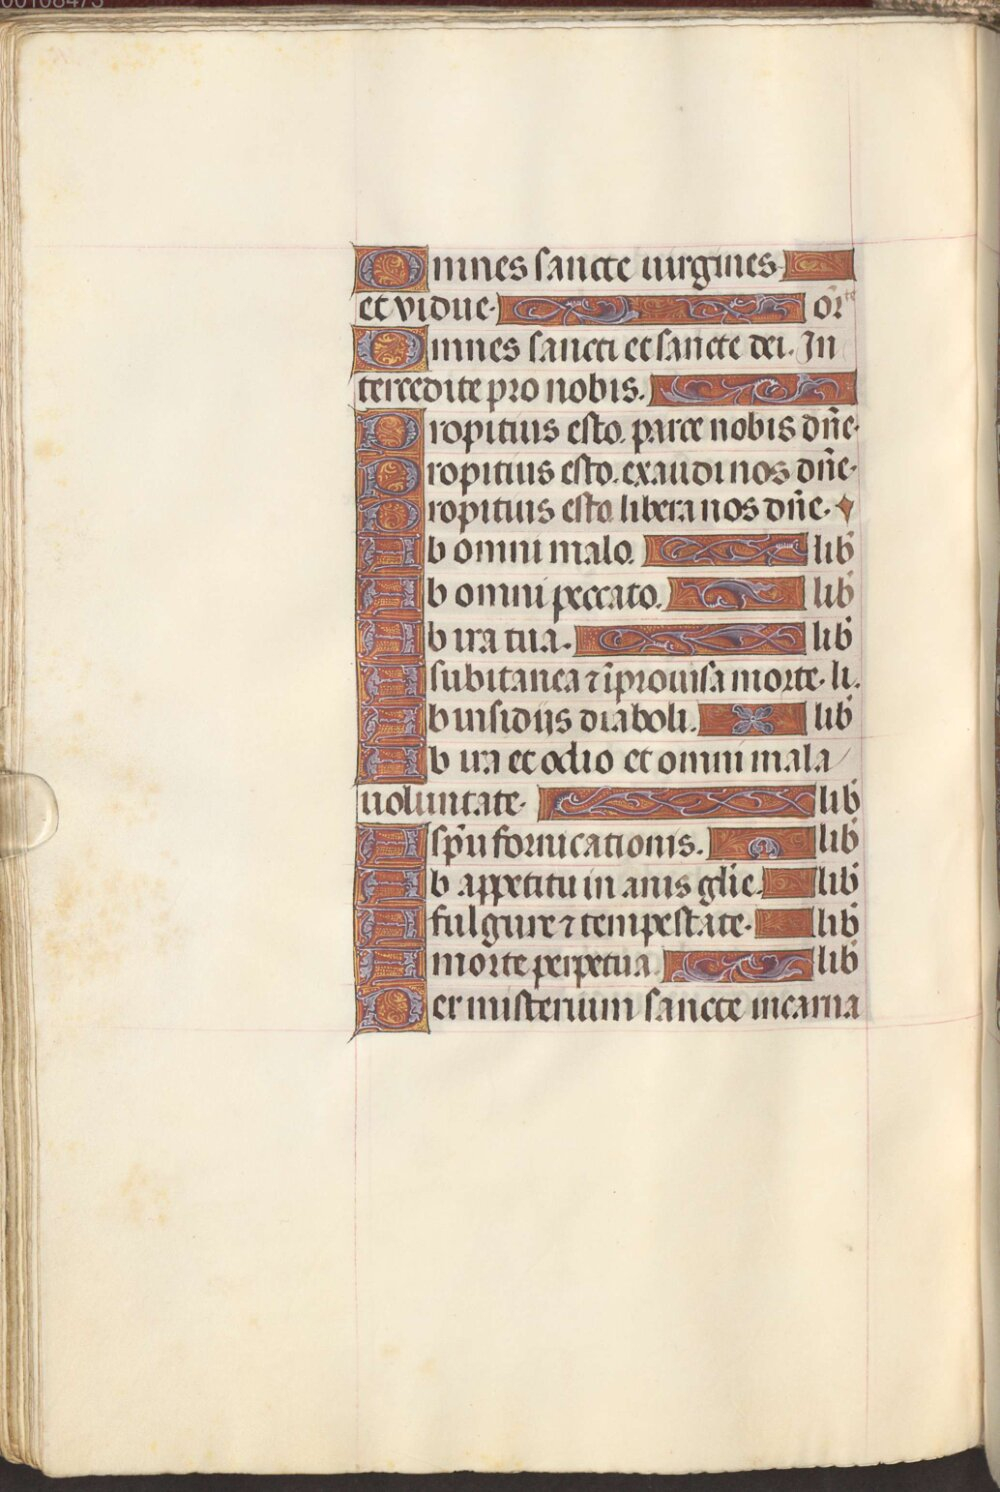 Omnes sancte uirgines
et vidue. or̄te
Omnes sancti et sancte dei. In
tercedite pro nobis.
Propitius esto. parce nobis dn̄e.
Propitius esto. exaudi nos dn̄e.
Propitius esto. libera nos dn̄e.
Ab omni malo. lib̄
Ab omni peccato. lib̄
Ab ira tua. lib̄
A subitanea ⁊ īprouisa morte. li.
Ab insidijs diaboli. lib̄
Ab ira et odio et omni mala
uoluntate. lib̄
A sp̄u fornicationis. lib̄
Ab appetitu in anis gl̄ie. lib̄
A fulgure ⁊ tempestate. lib̄
A morte perpetua. lib̄
Per misterium sancte incarna